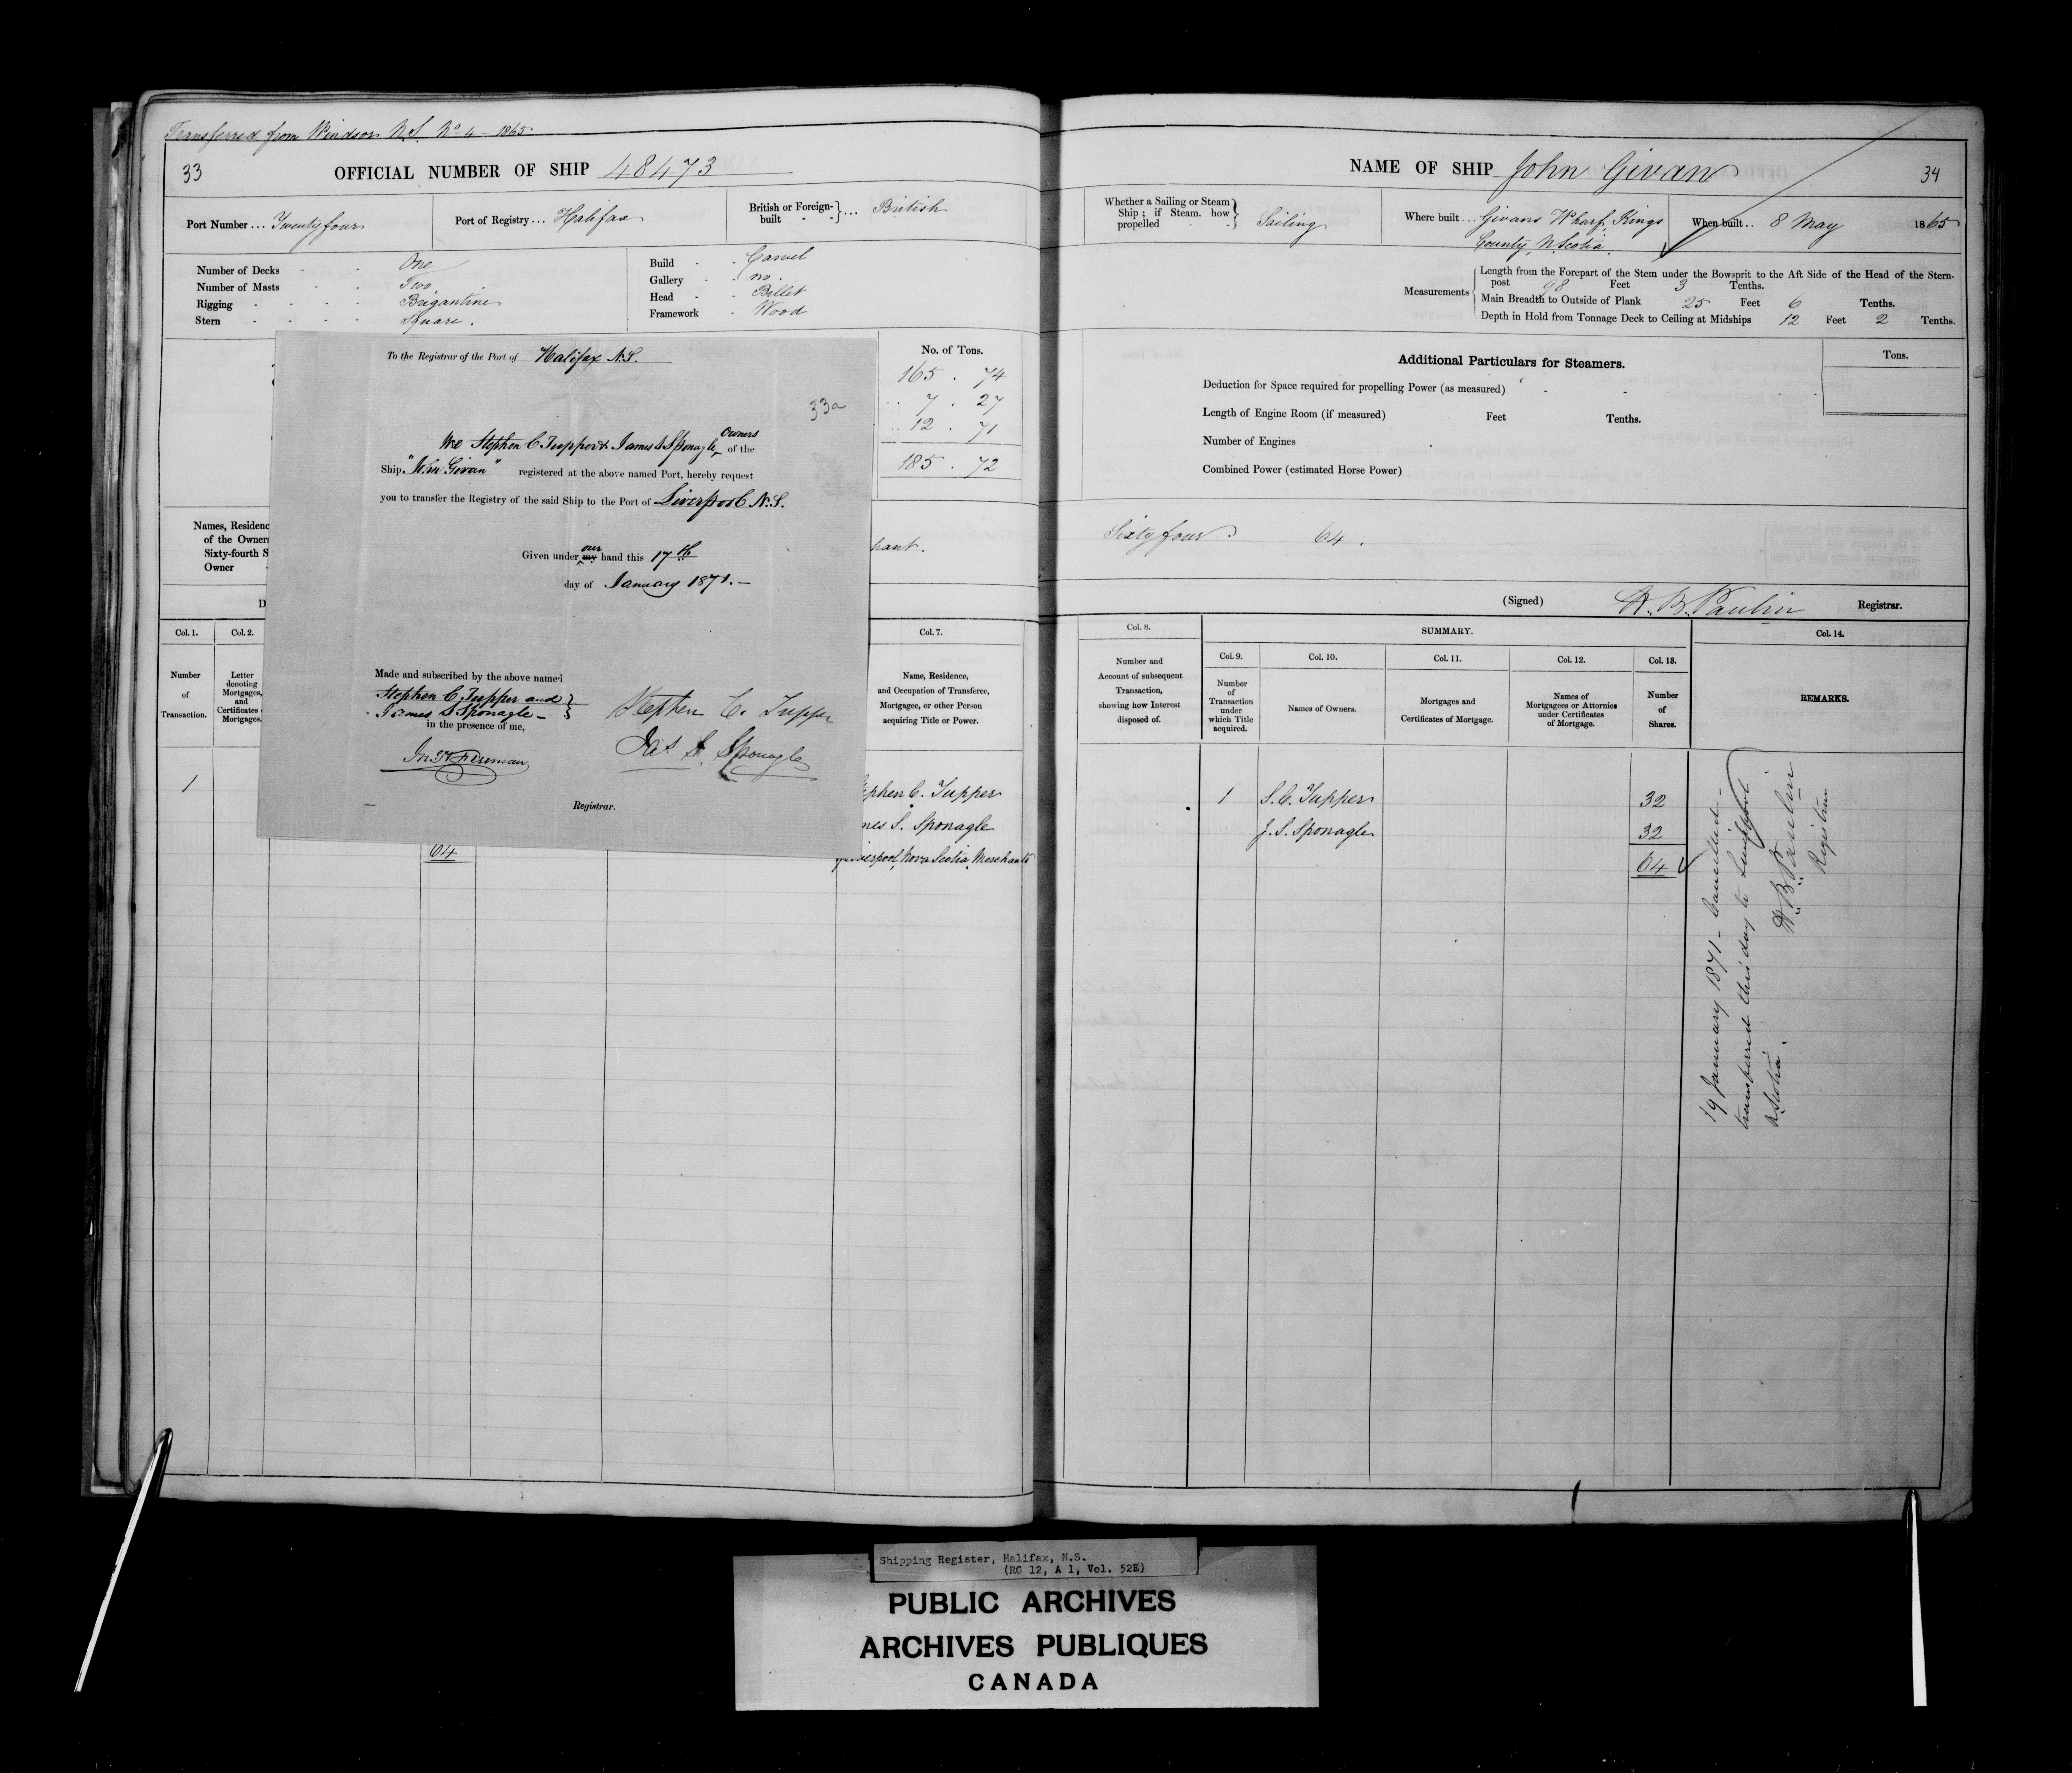 Transferred from Windsor N.S. No 4 - 1865
33
OFFICIAL NUMBER OF SHIP 48473
Port Number ... Twenty four
Port of Registry ... Halifax
British or Foreign-built - - } ... British
Number of Decks - - One
Number of Masts - - Two
Rigging - - - - Brigantine
Stern - - - - Square.
Build - - Carvel
Gallery - - no.
Head - - Billet
Framework - Wood
No. of Tons.
165 . 74
.. 7 . 27
.. 12 . 71
185 . 72
Names, Residenc
of the Owner
Sixty-fourth S
Owner
hant.
D
Col. 1.
Col. 2.
Col. 7.
Number
of
Transaction.
Letter
denoting
Mortgages,
and
Certificates
Mortgages.
Name, Residence,
and Occupation of Transferee,
Mortgagee, or other Person
acquiring Title or Power.
1
ephen C. Tupper
mes S. Sponagle
64
erpool, Nova Scotia, Merchants
To the Registrar of the Port of Halifax N.S.
33a
We Stephen C Tupper & James S Sponagle, Owners of the
Ship "John Givan" registered at the above named Port, hereby request
you to transfer the Registry of the said Ship to the Port of Liverpool N.S.
Given under my our hand this 17th
day of January 1871. —
Made and subscribed by the above named
Stephen C. Tupper and }
James S Sponagle —
in the presence of me,
Stephen C. Tupper
Jas S. Sponagle
Registrar.
NAME OF SHIP John Givan
34
Whether a Sailing or Steam
Ship ; if Steam. how
propelled - - } Sailing
Where built ... Givans Wharf, Kings
County, N Scotia.
When built .. 8 May 1865
Measurements
Length from the Forepart of the Stem under the Bowsprit to the Aft Side of the Head of the Stern-
post 98 Feet 3 Tenths.
Main Breadth to Outside of Plank 25 Feet 6 Tenths.
Depth in Hold from Tonnage Deck to Ceiling at Midships 12 Feet 2 Tenths.
Additional Particulars for Steamers.
Tons.
Deduction for Space required for propelling Power (as measured) - - -
Length of Engine Room (if measured) Feet Tenths.
Number of Engines
Combined Power (estimated Horse Power)
Sixty four 64 .
(Signed) H. B. Paulin Registrar.
Col. 8.
SUMMARY.
Col. 14.
Col. 9.
Col. 10.
Col. 11.
Col. 12.
Col. 13.
Number and
Account of subsequent
Transaction,
showing how Interest
disposed of.
Number
of
Transaction
under
which Title
acquired.
Names of Owners.
Mortgages and
Certificates of Mortgage.
Names of
Mortgagees or Attornies
under Certificates
of Mortgage.
Number
of
Shares.
REMARKS.
1 S. C. Tupper 32
J. S. Sponagle 32
64
19 January 1871 - Cancelled -
transferred this day to Liverpool
N Scotia.
H. B. Paulin
Registrar
Shipping Register, Halifax, N.S.
(RG 12, A 1, Vol. 52E)
PUBLIC ARCHIVES
ARCHIVES PUBLIQUES
CANADA